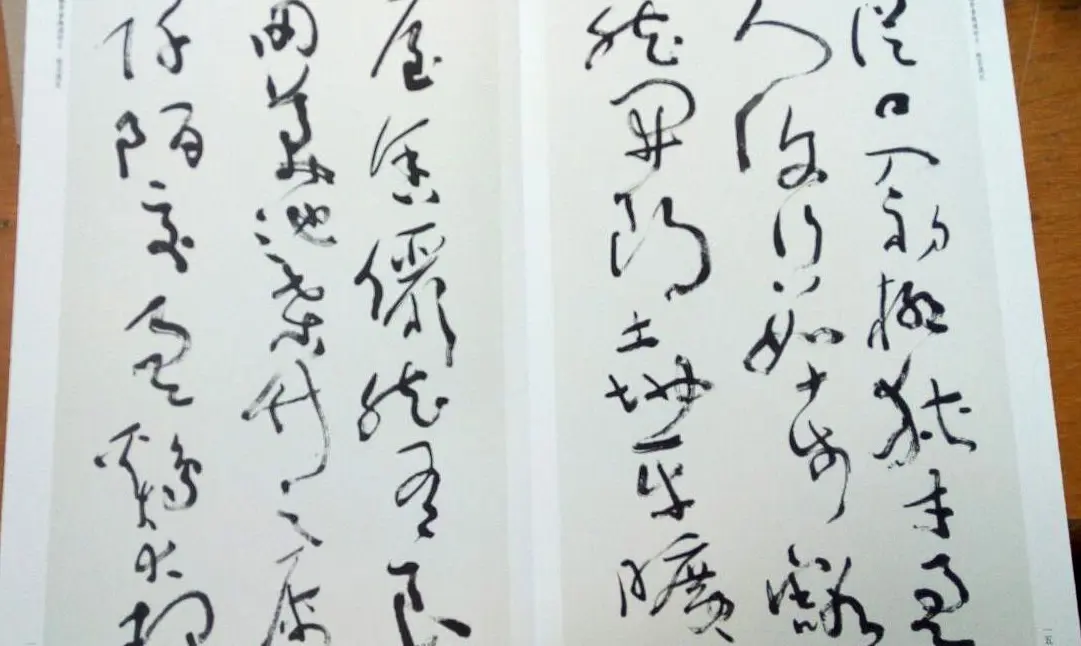 從口入初極狹才通
人復行數十步豁
然開朗土地平曠
屋舍儼然有良
田美池桑竹之屬
阡陌交通雞犬相
一五